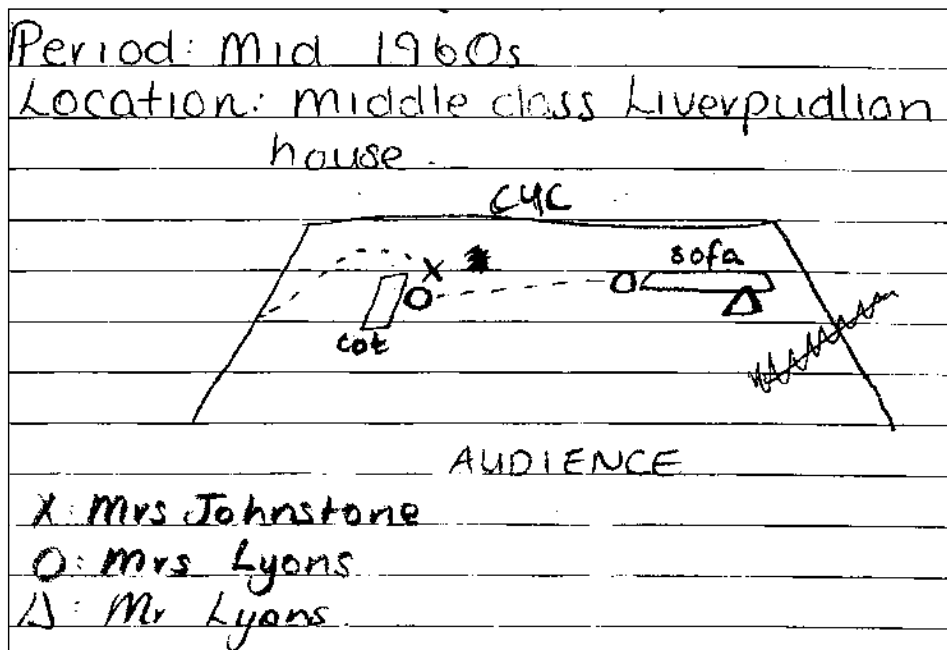 Period: Mid 1960s
Location: Middle class Liverpudlian
house.
CYC
sofa
cot
AUDIENCE
X: Mrs Johnstone
O: Mrs Lyons
Δ: Mr Lyons.